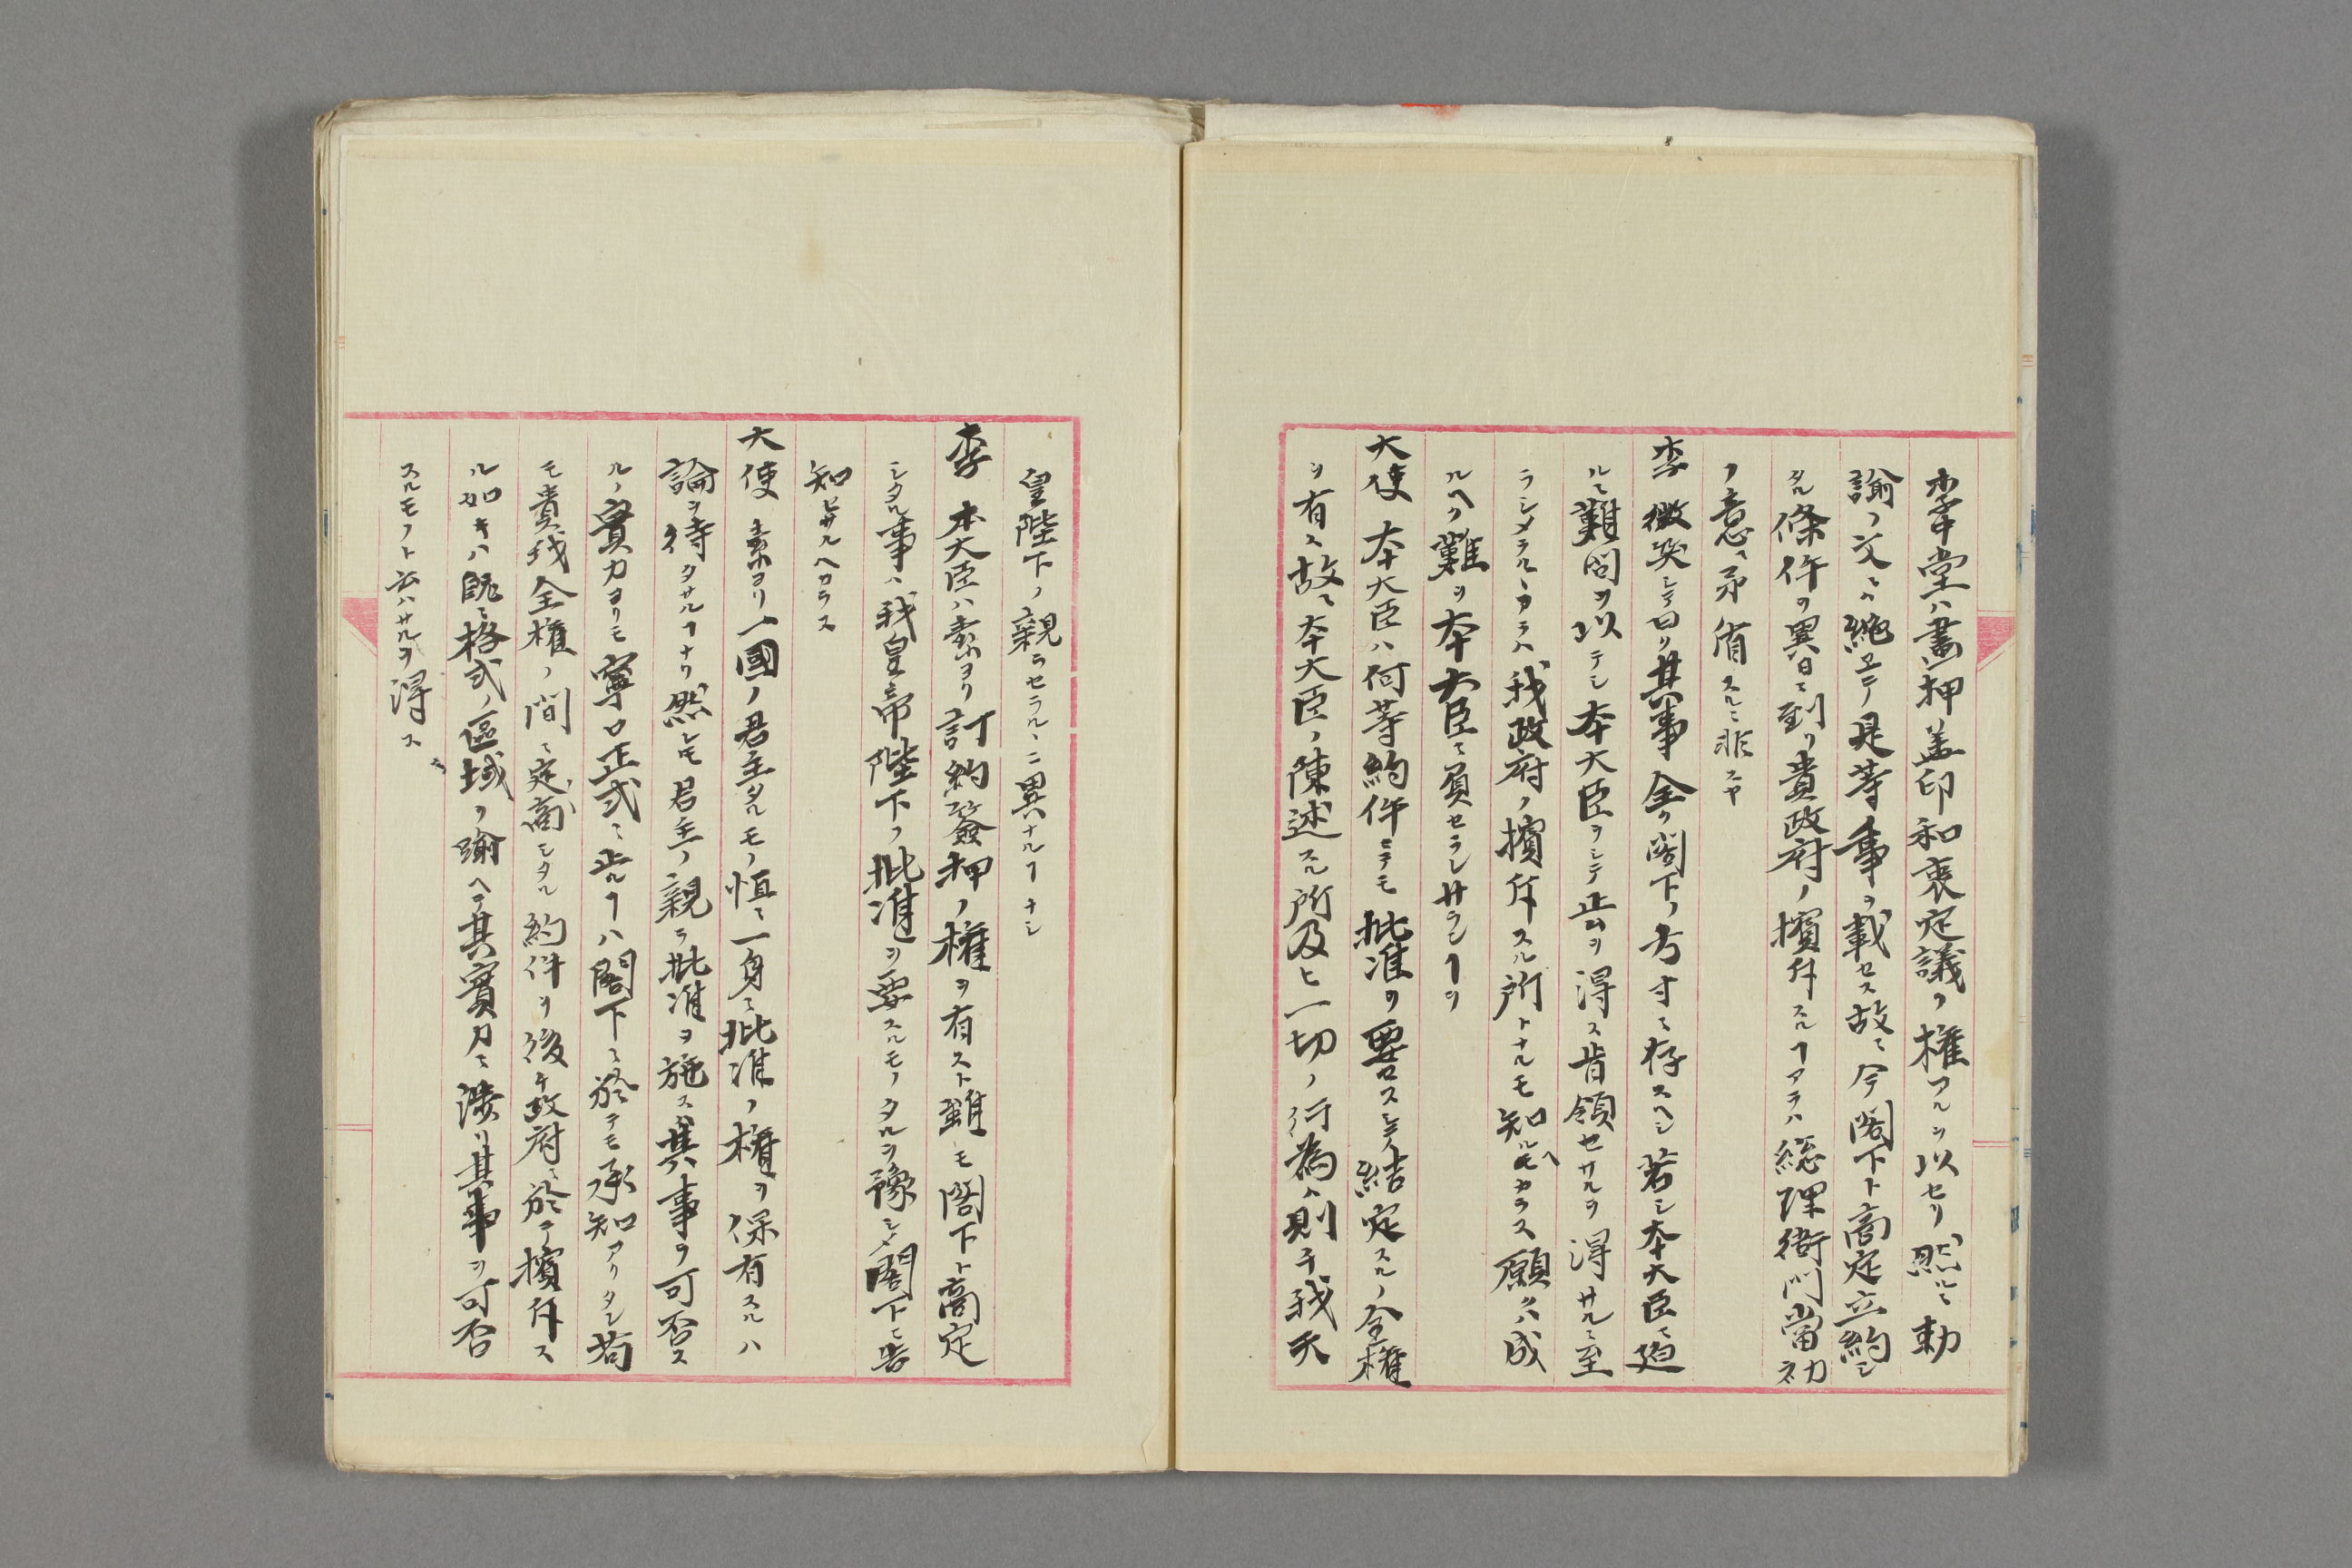 李中堂ハ畵押蓋印和衷定議ノ權アルヲ以セリ然ルニ勅
諭ノ文ニハ絶エテ是等ノ事ヲ載セス故ニ今閣下ト商定立約シ
タル條件ヲ異日ニ到リ貴政府ノ擯斥スルヿアラハ総理衙門當初
ノ意ニ矛盾スルニ非スヤ
李 微笑シテ曰ク其事全ク閣下ノ方寸ニ存スヘシ若シ本大臣ニ迫
ルニ難問ヲ以テシ本大臣ヲシテ止ムヲ得ス肯領セサルヲ得サルニ至
ラシメラルヽカラハ我政府ノ擯斥スル所トナルモ知ルヘカラス願クハ成
ルヘク難ヲ本大臣ニ負セラレサランヿヲ
大使 本大臣ハ何等約件ニテモ批准ヲ要ロスシテ結定スルノ全權
ヲ有ス故ニ本大臣ノ陳述スル所及ヒ一切ノ行為ハ則チ我天
皇陛下ノ親ラセラルヽニ異ナルヿナシ
李 本大臣ハ素ヨリ訂約簽押ノ權ヲ有スト雖モ閣下ト商定
シタル事ハ我皇帝陛下ノ批准ヲ要スルモノタルヲ豫シメ閣下ニ告
知セサルヘカラス
大使 素ヨリ一國ノ君主タルモノ恒ニ一身ニ批准ノ權ヲ保有スルハ
論ヲ待タサルヿナリ然レモ君主ノ親ラ批准ヲ施ス其事ヲ可否ス
ルノ實力ヨリモ寧ロ正式ニ止ルヿハ閣下ニ於テモ承知アリタシ苟
モ貴我全權ノ間ニ定商シタル約件ヲ後チ政府ニ於テ擯斥ス
ル如キハ既ニ格式ノ區域ヲ踰ヘテ其實力ニ渉リ其事ヲ可否
スルモノト云ハサルヲ得ス